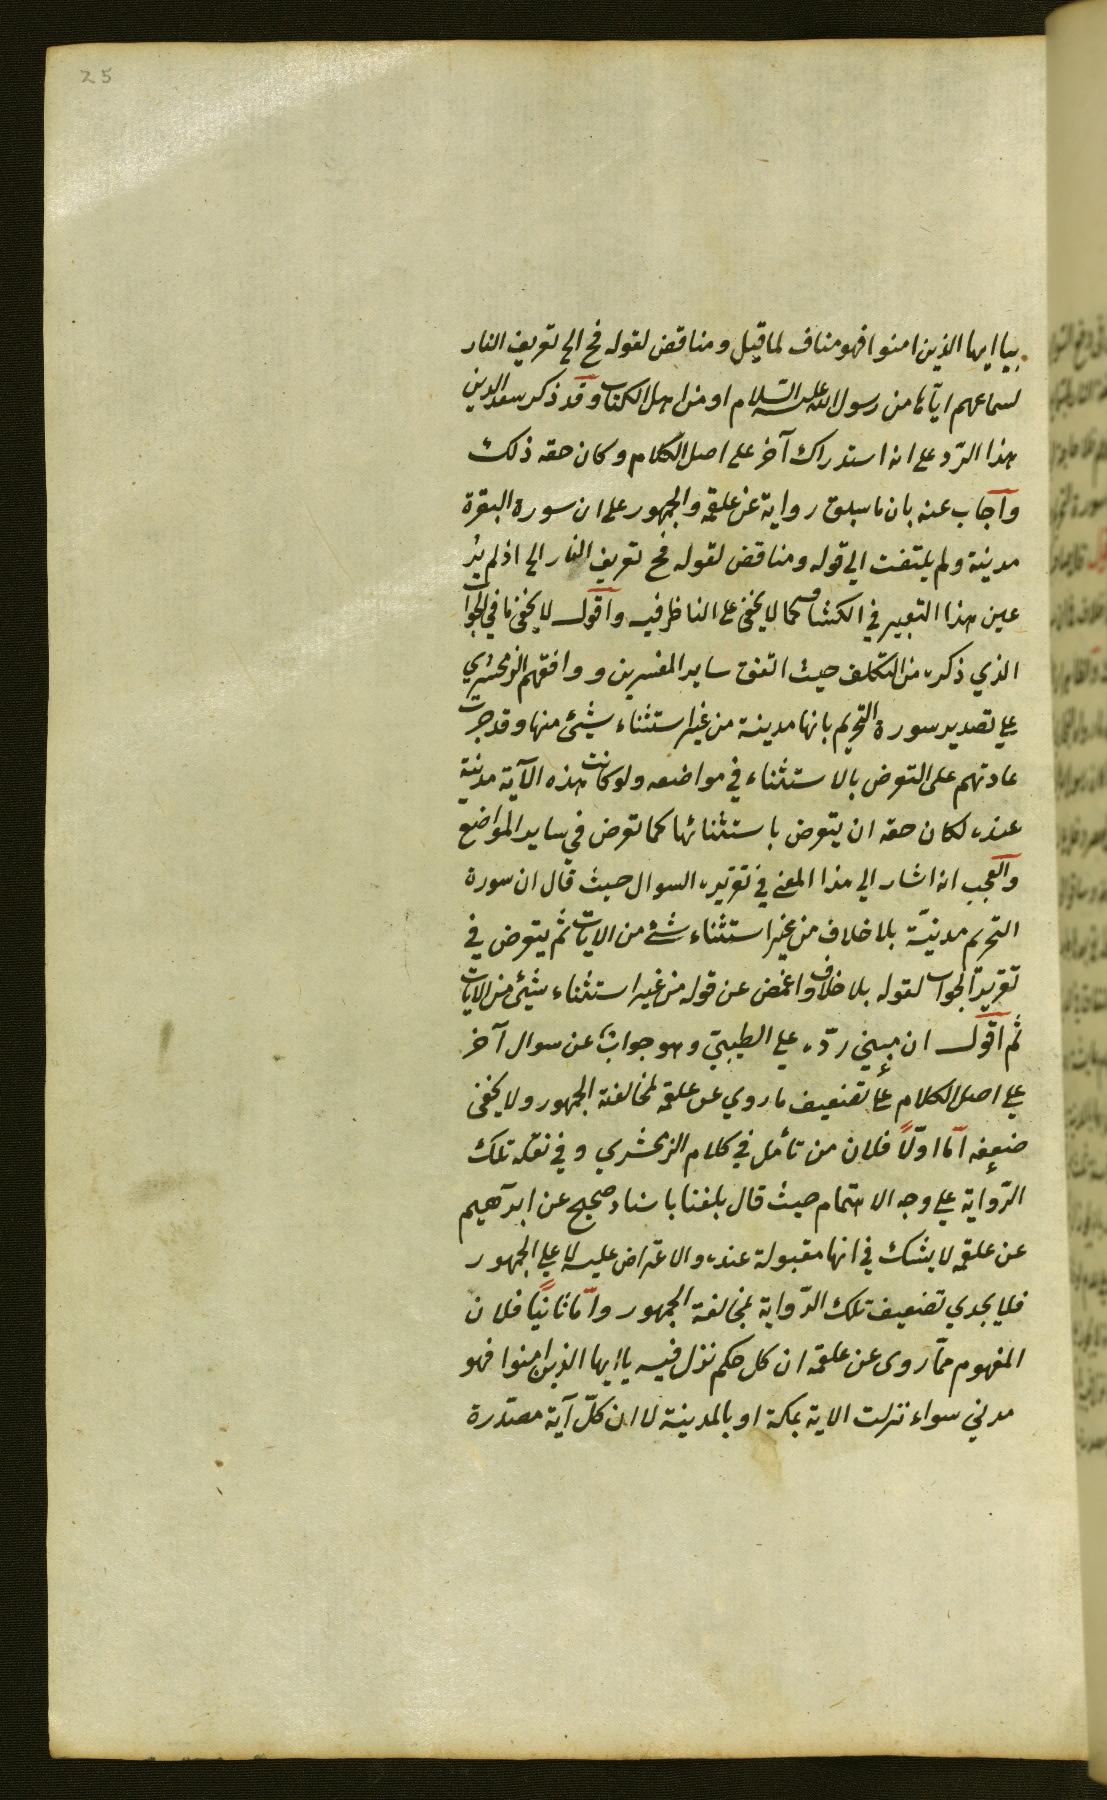 25
بيا ايها الذين امنوا فهو مناف لما قيل ومناقض لقوله فح الى تعريف النار
لسماعهم اياها من رسول الله عليه السلام او من اهل الكتاب وقد ذكر سعد الدين
هذا الرّد على انه استدراك آخر على اصل الكلام وكان حقه ذلك
وآجاب عنه بان ما سبق رواية عن علقمه والجمهور على ان سورة البقرة
مدينة ولم يلتفت الى قوله ومناقض لقوله فح تعريف النار الى اذ لم ير
عين هذا التعبير في الكشاف كما لا يخفى على الناظر فيه وآقول لا يخفى ما في الجواب
الذي ذكره من التكلف حيث اتفق ساير المفسرين ووافقهم الزمخشري
على تصدير سورة التحريم بانها مدينة من غير استثناء شيئ منها وقد جرت
عادتهم على التعرض بالاستثناء في مواضعه ولو كانت هذه الآية مدنية
عنده لكان حقه ان يتعرض باستثنائها كما تعرض في ساير المواضع
وآلعجب انه اشار الى هذا المعنى في تقريره السوال حيث قال ان سورة
التحريم مدنيّة بلا خلاف من غير استثناء شئ من الايات ثم يتعرض في
تقرير الجواب لقوله بلا خلاف واغمض عن قوله من غير استثناء شيئ من الايات
ثم آقول ان مبنى ردّه على الطيبيّ وهو جواب عن سوال آخر
على اصل الكلام على تضعيف ما روي عن علقمه لمخالفة الجمهور ولا يخفى
ضعفه آما اوّلاً فلان من تأمل في كلام الزمخشري وفي نقله تلك
الرّواية على وجه الاهتمام حيث قال بلغنا باسناد صحيح عن ابرآهيم
عن علقمه لا يشك في انها مقبولة عنده والاعتراض عليه لا على الجمهور
فلا يجدي تضعيف تلك الرّواية لمخالفة الجمهور وآما ثانيًا فلان
المفهوم ممّا روى عن علقمه ان كل حكم نزل فيه يا ايها الذين امنوا فهو
مدني سواء نزلت الاية بمكة او بالمدينة لا ان كلّ آية مصدّرة